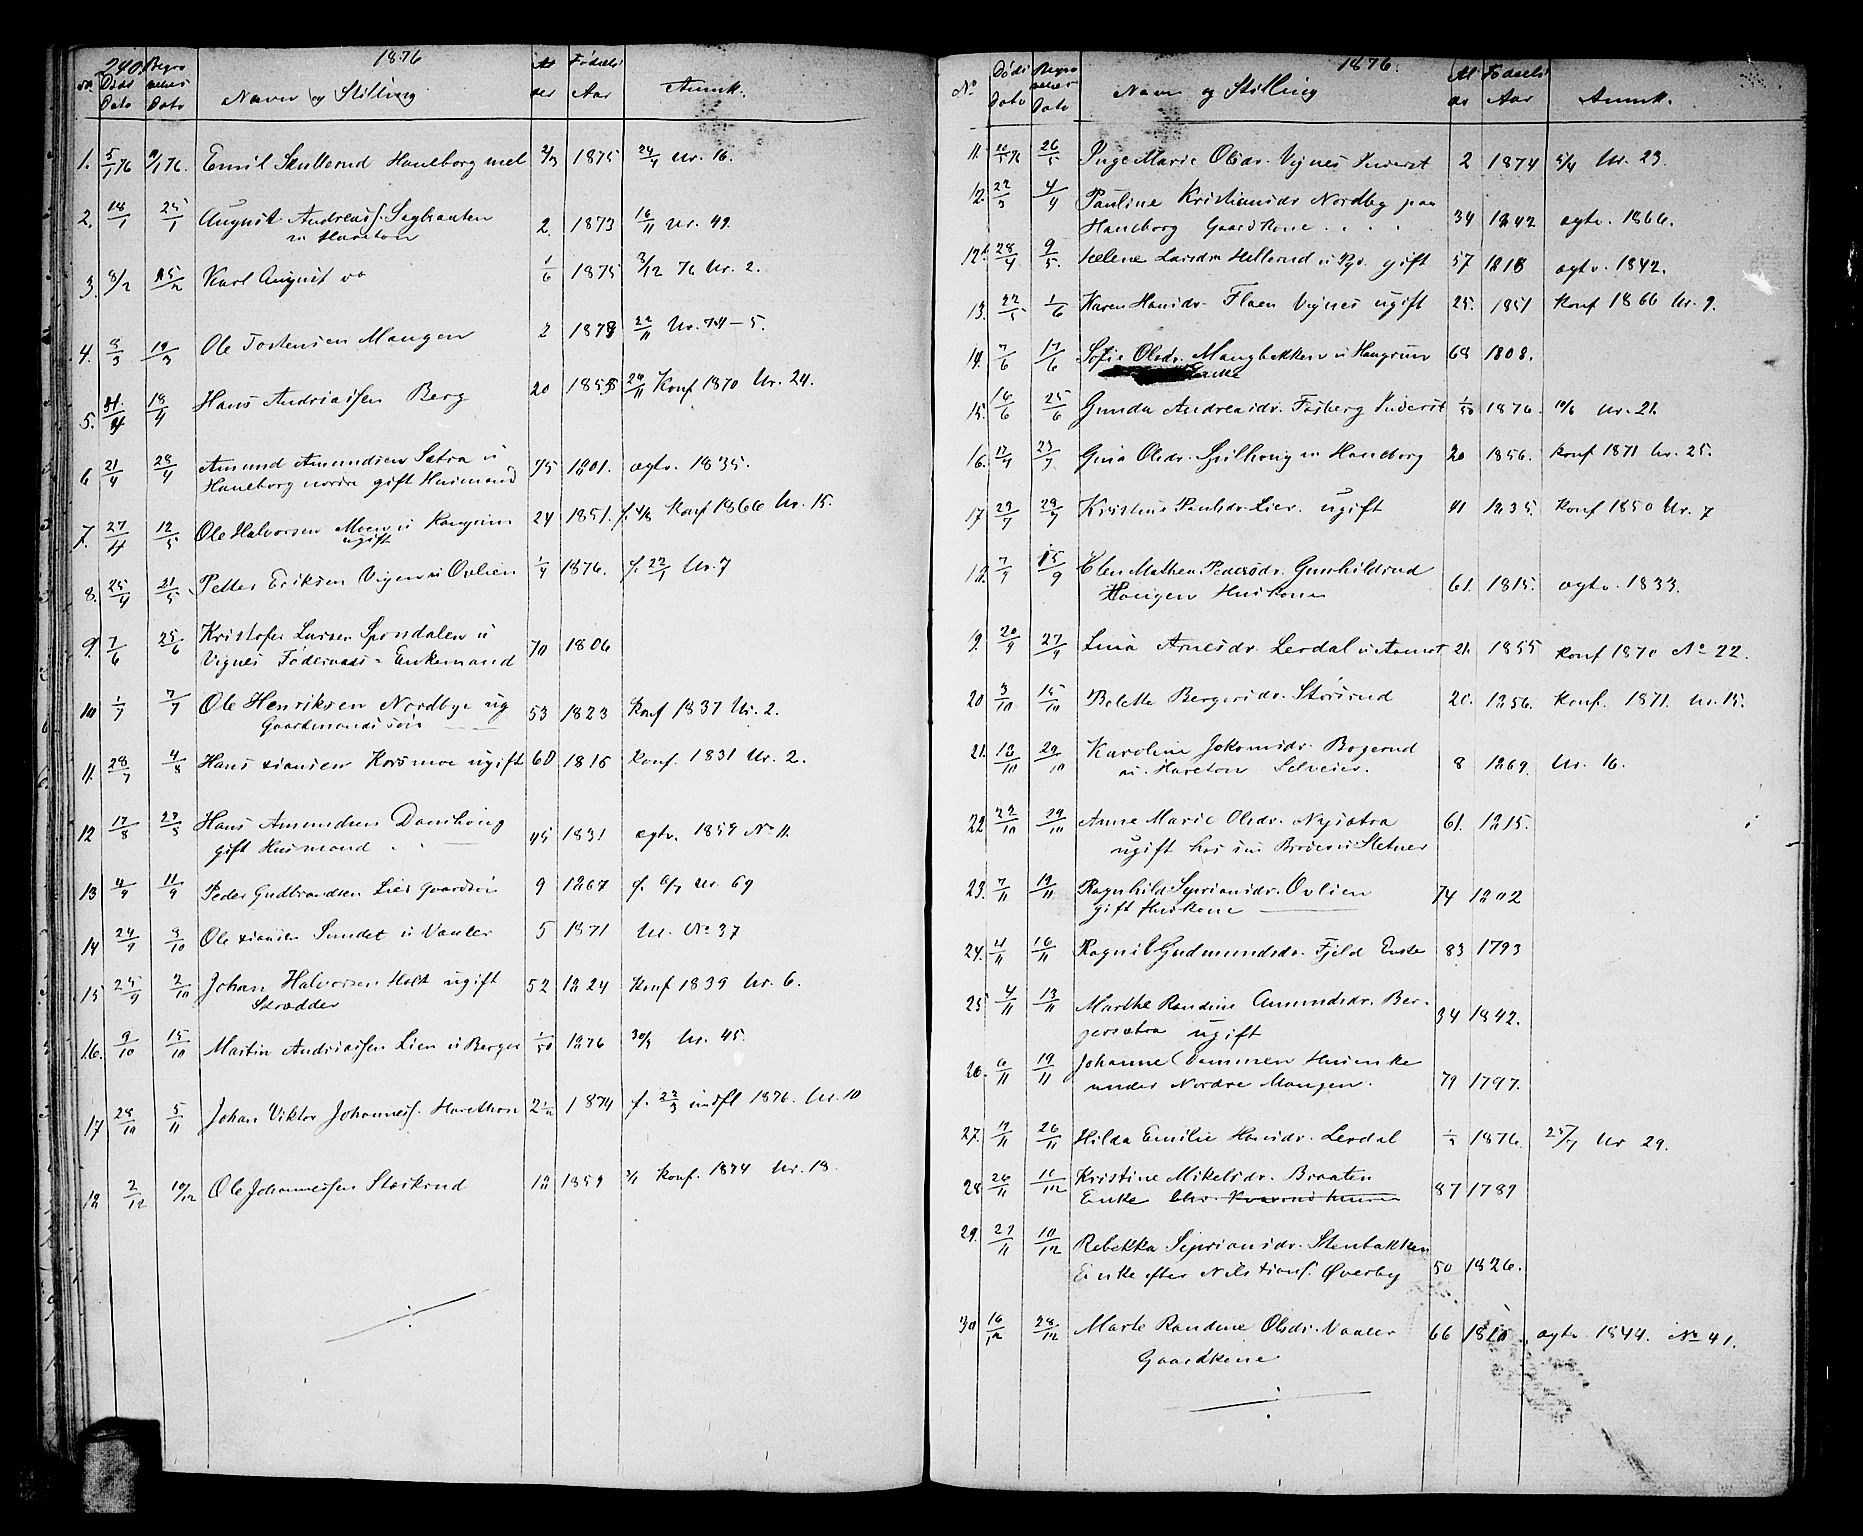 240.
1876
No Døds Dato Begravelses Dato Navn og Stilling Alder Fødsels Aar Anmk.
1. 5/1 76 9/1 76. Emil Skullerud Haneborg mel 2/3 1875 24/4 Nr. 16.
2. 18/1 25/1 August Andreasf. Segbraaten 2. 1873 16/11 Nr. 49.
u Hareton
3. 8/2 15/2 Karl August 1/6 1875 3/12 76 Nr. 2.
4. 8/3 19/3 Ole Tostensen Mangen 2 1873 22/11 Nr. 74-5.
5. 11/4 18/4 Hans Andriassen Berg 20 1855 24/11 Konf 1870 Nr. 24.
6 21/4 28/4 Amund Amundsen Sætra u
Haneborg nordre gift Husmand 75 1801. ægtv. 1835.
7. 27/4 12/5 Ole Halvorsen Moen u Kongrim 24 1851. f. 4/8 Konf 1866 Nr. 15.
ugift
8. 25/4 21/5 Petter Eriksen Vignes u Ovlien 1/4 1876. f. 22/1 Nr. 7
9. 7/6 25/6 Kristofer Larsen Spondalen u
Vignes Føderaads-Enkemand 70 1806
10 1/7 7/7 Ole Henriksen Nordbye ug 53 1823 Konf 1837 Nr. 2.
Gaardmands søn
11. 28/7 4/8 Hans xiansen Korsmoe ugift 60 1816 Konf. 1831 Nr. 2.
12 17/8 27/8 Hans Amundsen Damhaug
gift Husmand 45 1831 ægtv. 1859 No 11.
13 4/9 11/9 Peder Gudbrandsen Lier Gaardsøn 9 1867 f. 6/7 Nr. 69
14 24/9 8/10 Ole xiansen Sundet u Vaaler 5 1871 Nr. No 37
15 25/9 2/10 Johan Halvorsen Holt ugift 52 1824 Konf 1839 Nr. 6.
Skrædder
16. 9/10 15/10 Martin Andriassen Lien u Berger 1/50 1876 30/8 Nr. 45.
17 28/10 5/11 Johan Viktor Johannesf. Harethon 2 1874 f. 22/3 indfl 1876. Nr. 10
18 2/12 10/12 Ole Johannessen Stækrud 18 1859 3/1 Konf. 1874 Nr. 18.
1876.
No Døds Dato Begravelses Dato Navn og Stilling Alder Fødsels Aar Anmk.
11. 16/5 76 26/5 Inge Marie Olsdr. Vignes Inderst 2 1874 5/4 Nr. 23.
12. 22/3 4/4 Pauline Kristiansdr Nordby paa
Haneborg Gaardkone 34 1842 ægtv. 1866.
12b 28/4 9/5. Helene Larsdr Hellerud gift 57 1818 ægtv. 1842.
13. 22/5 1/6 Karen Hansdr. Flaen Vignes ugift 25. 1851 Konf 1866 Nr. 9.
14. 7/6 17/6 Sofie Olsdr. Mangbakken u Haugrim 68 1808.
Enke
15. 16/6 25/6 Gunda Andreasdr. Fosberg Inderst 1/50 1876. Nr. 21.
16. 17/7 23/7 Gina Olsdr. Spilhoug u Haneborg 20 1856. Konf 1871 Nr. 25.
17 29/7 Kristine Paulsdr. Lier. ugift 41 1835. Konf 1850 Nr. 7
18. 7/9 15/9 Elen Mathea Pedersdr. Gunhildrud
Haugen Huskone 61. 1815. ægtv. 1833.
19. 20/9 27/9 Lina Arnesdr. Lerdal u Aamot 21. 1855 Konf 1870 No 22.
20 3/10 15/10 Bolette Bergersdr. Størsrud 20. 1856. Konf. 1871. Nr. 15.
21. 18/10 29/10 Karoline Johansdr. Bogerud
u. Hareton Selveier. 8 1869. Nr. 16.
22 22/10 29/10 Anne Marie Olsdr. Nysætra 61. 1815.
ugift hos sin Broder u Sletner
23. 7/11 19/11 Ragnhild Syversdr. Ovlien
gift Huskone 74 1802
24. 4/11 16/11 Ragnil Gudmundsdr. Fjeld Enke 83 1793
25 4/11 13/11 Marthe Randine Amundsdr. Ber-
gersætra ugift 34 1842.
26. 6/11 19/11 Johanne Dammen Husenke
under Nordre Mangen. 79 1797.
27. 17/11 26/11 Hilda Emilie Hansdr. Lerdal 1876. 25/7 Nr 29.
28 26/11 Kristine Mikelsdr. Braaten
Enke 87 1789
29. 27/11 10/12 Rebekka Siprionsdr. Stenbakken
Enke efter Nils xiansf. Øverby 50 1826.
30 16/12 28/12 Marte Randine Olsdr. Vaaler 66 1810. ægtv. 1844. No 41.
Gaardkone